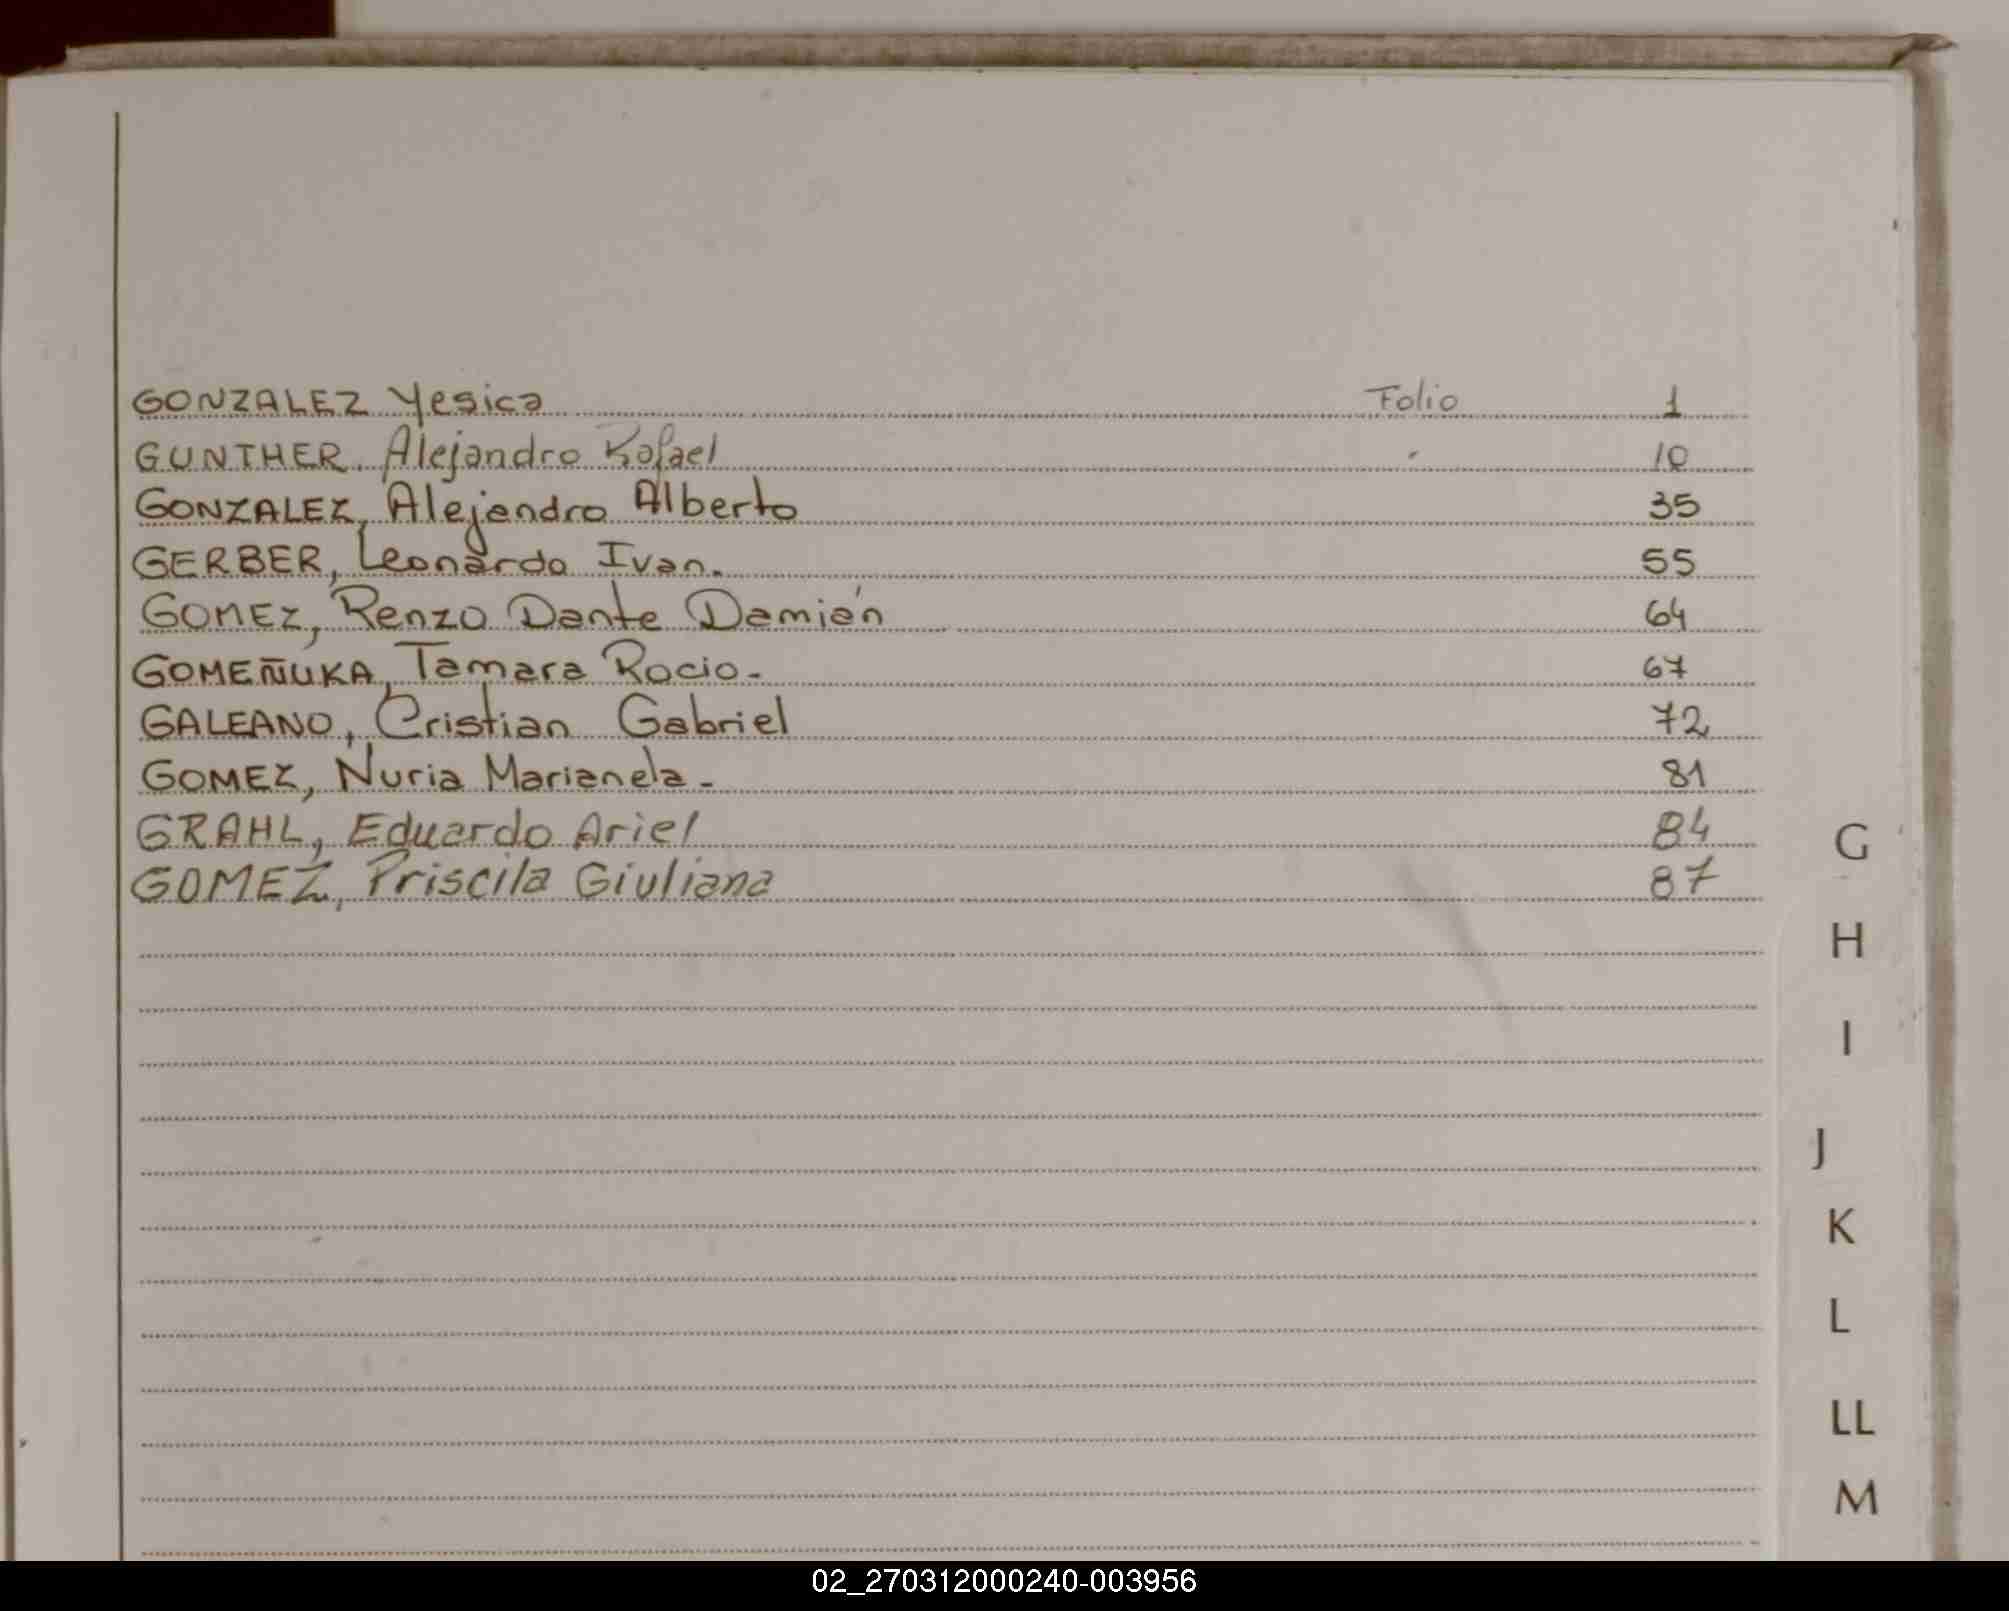 GONZALEZ Yesica Folio 1
GUNTHER, Alejandro Rafael 10
GONZALEZ, Alejandro Alberto 35
GERBER, Leonardo Ivan. 55
GOMEZ, Renzo Dante Damián 64
GOMEÑUKA, Tamara Rocio- 67
GALEANO, Cristian Gabriel 72
GOMEZ, Nuria Marianela- 81
GRAHL, Eduardo Ariel 84
GOMEZ, Priscila Giuliana 87
G
H
I
J
K
L
LL
M
02_270312000240-003956